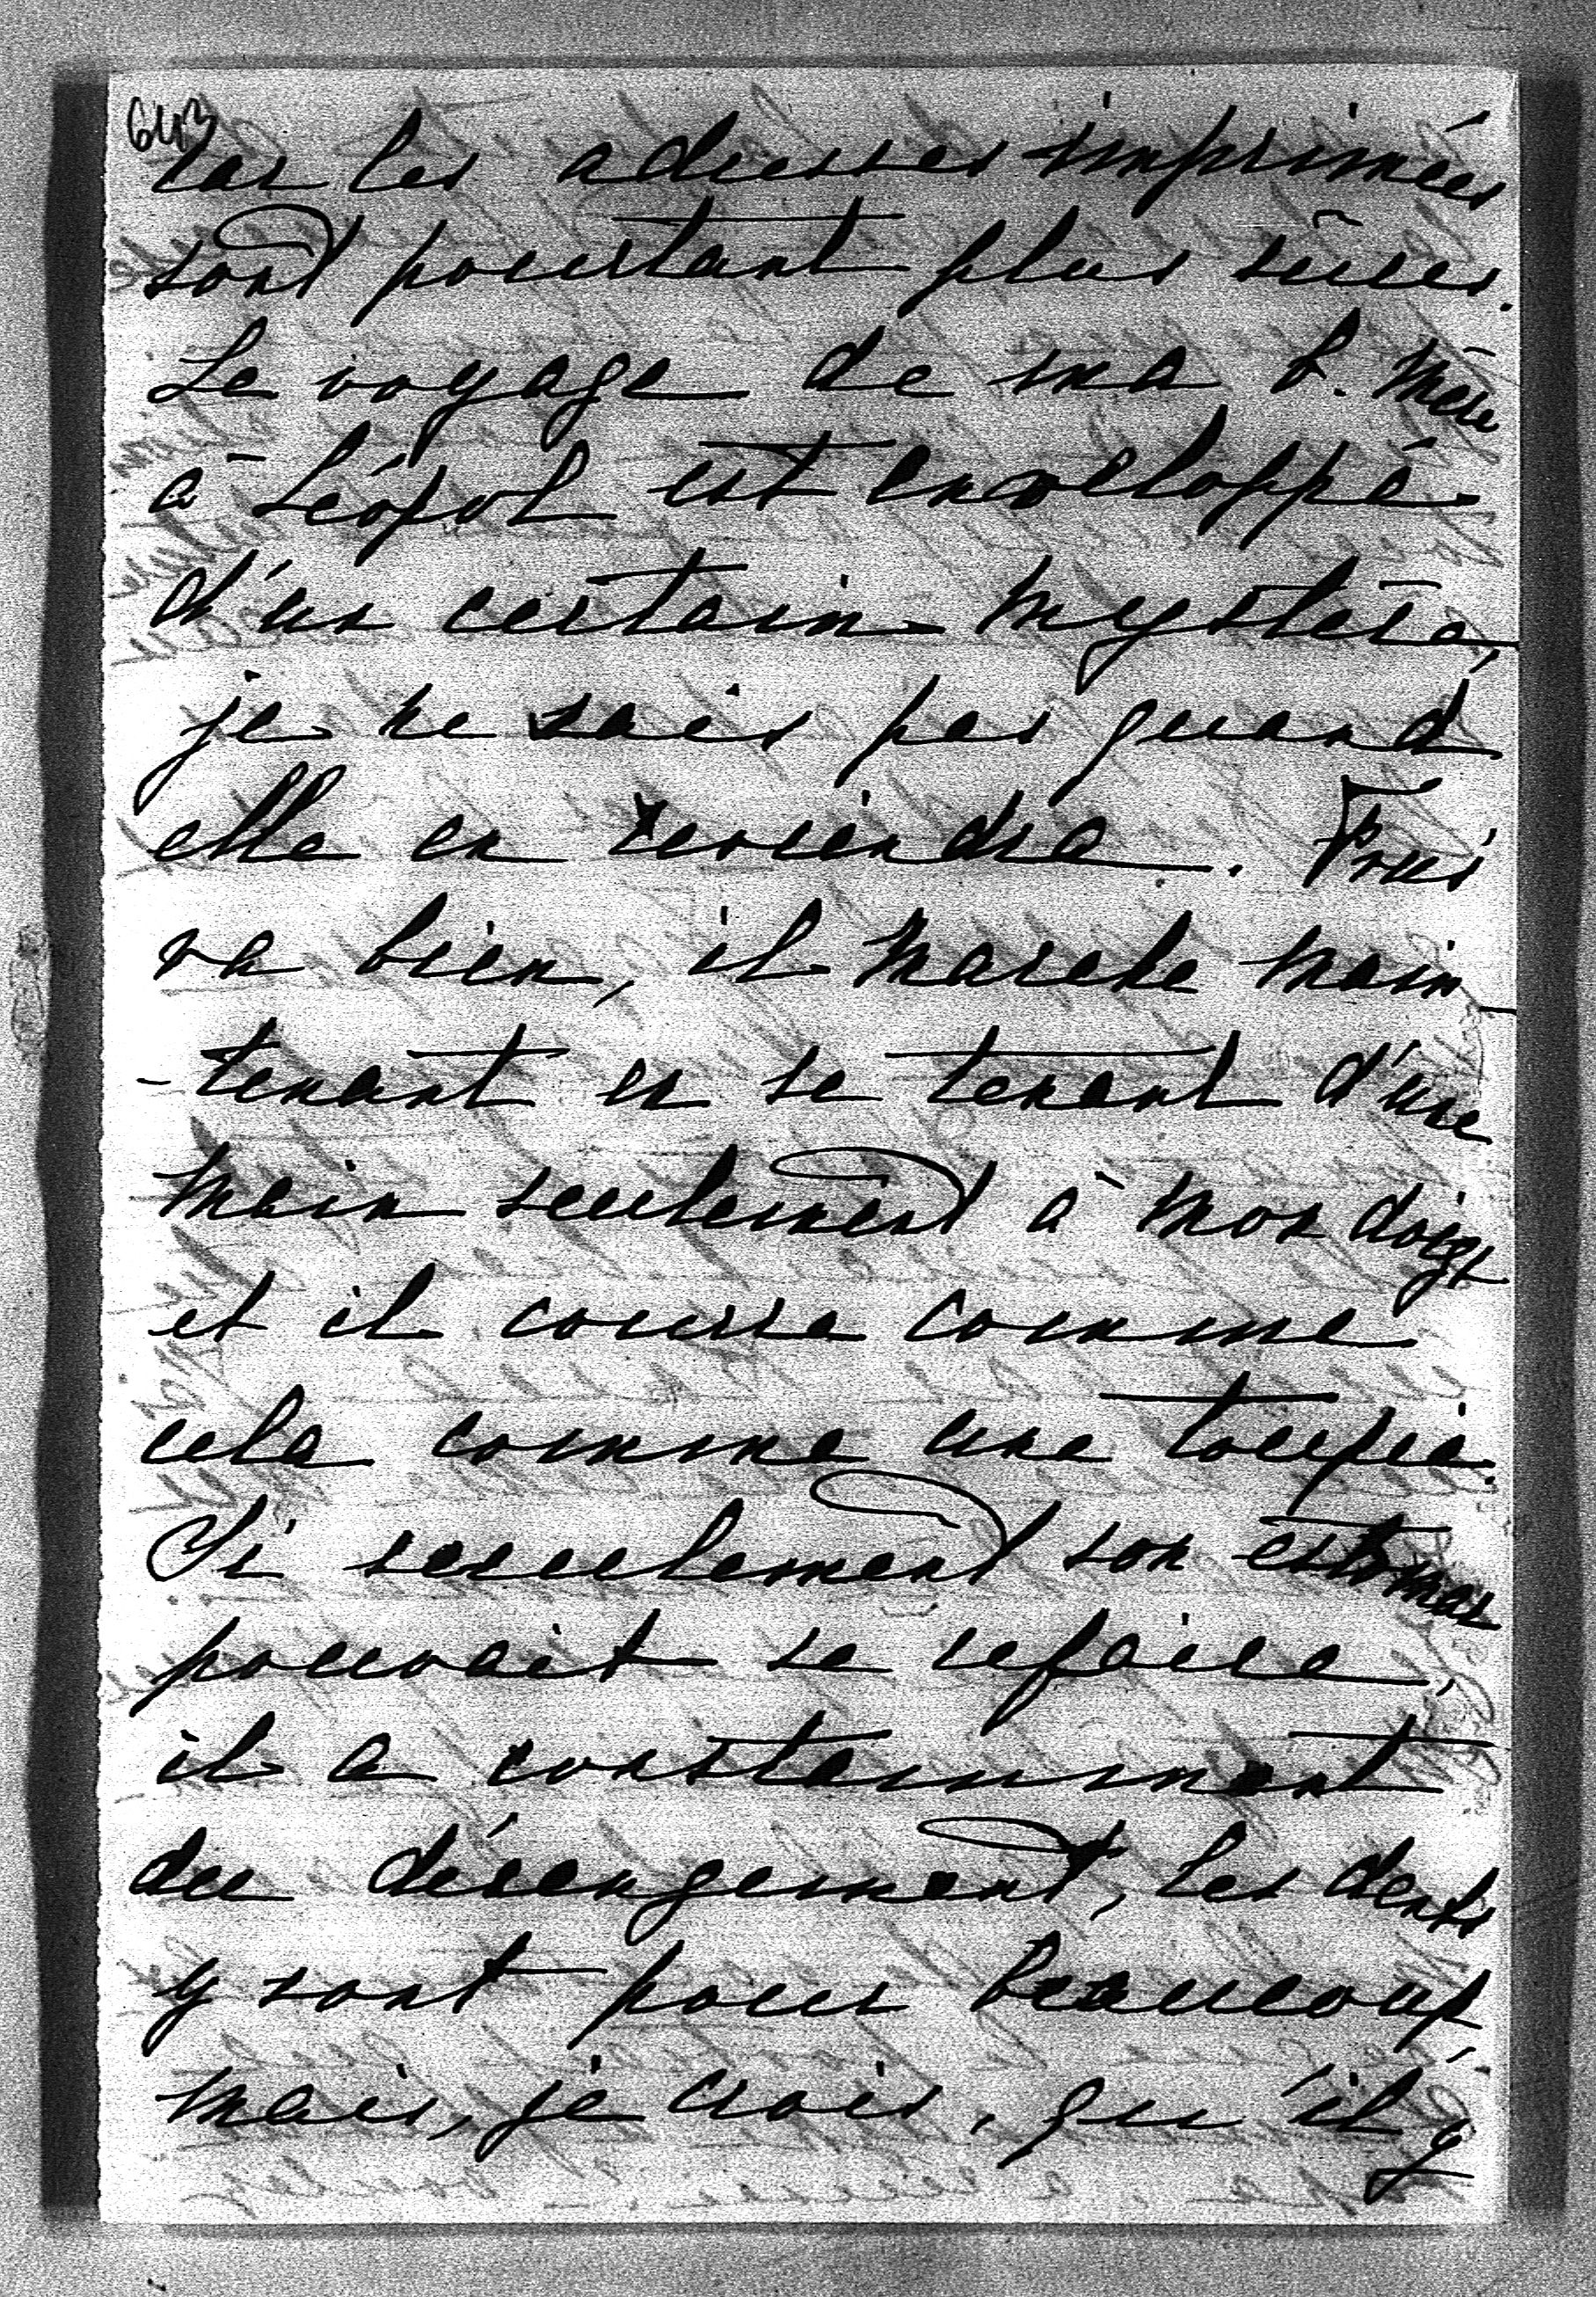 643
car les adresses imprimées
sont pourtant plus sûres.
Le voyage de ma b. mère
à Léopol est enveloppé
d'un certain mystère,
je ne sais pas quand
elle en reviendra.
va bien, il marche main-
-tenant en se tenant d'une
main seulement à mon doigt
et il courre comme
cela comme une toupie.
Si seulement son estomac
pouvait se refaire,
il a constamment
du dérangement, les dents
y sont pour beaucoup
mais, je crois, qu'il y